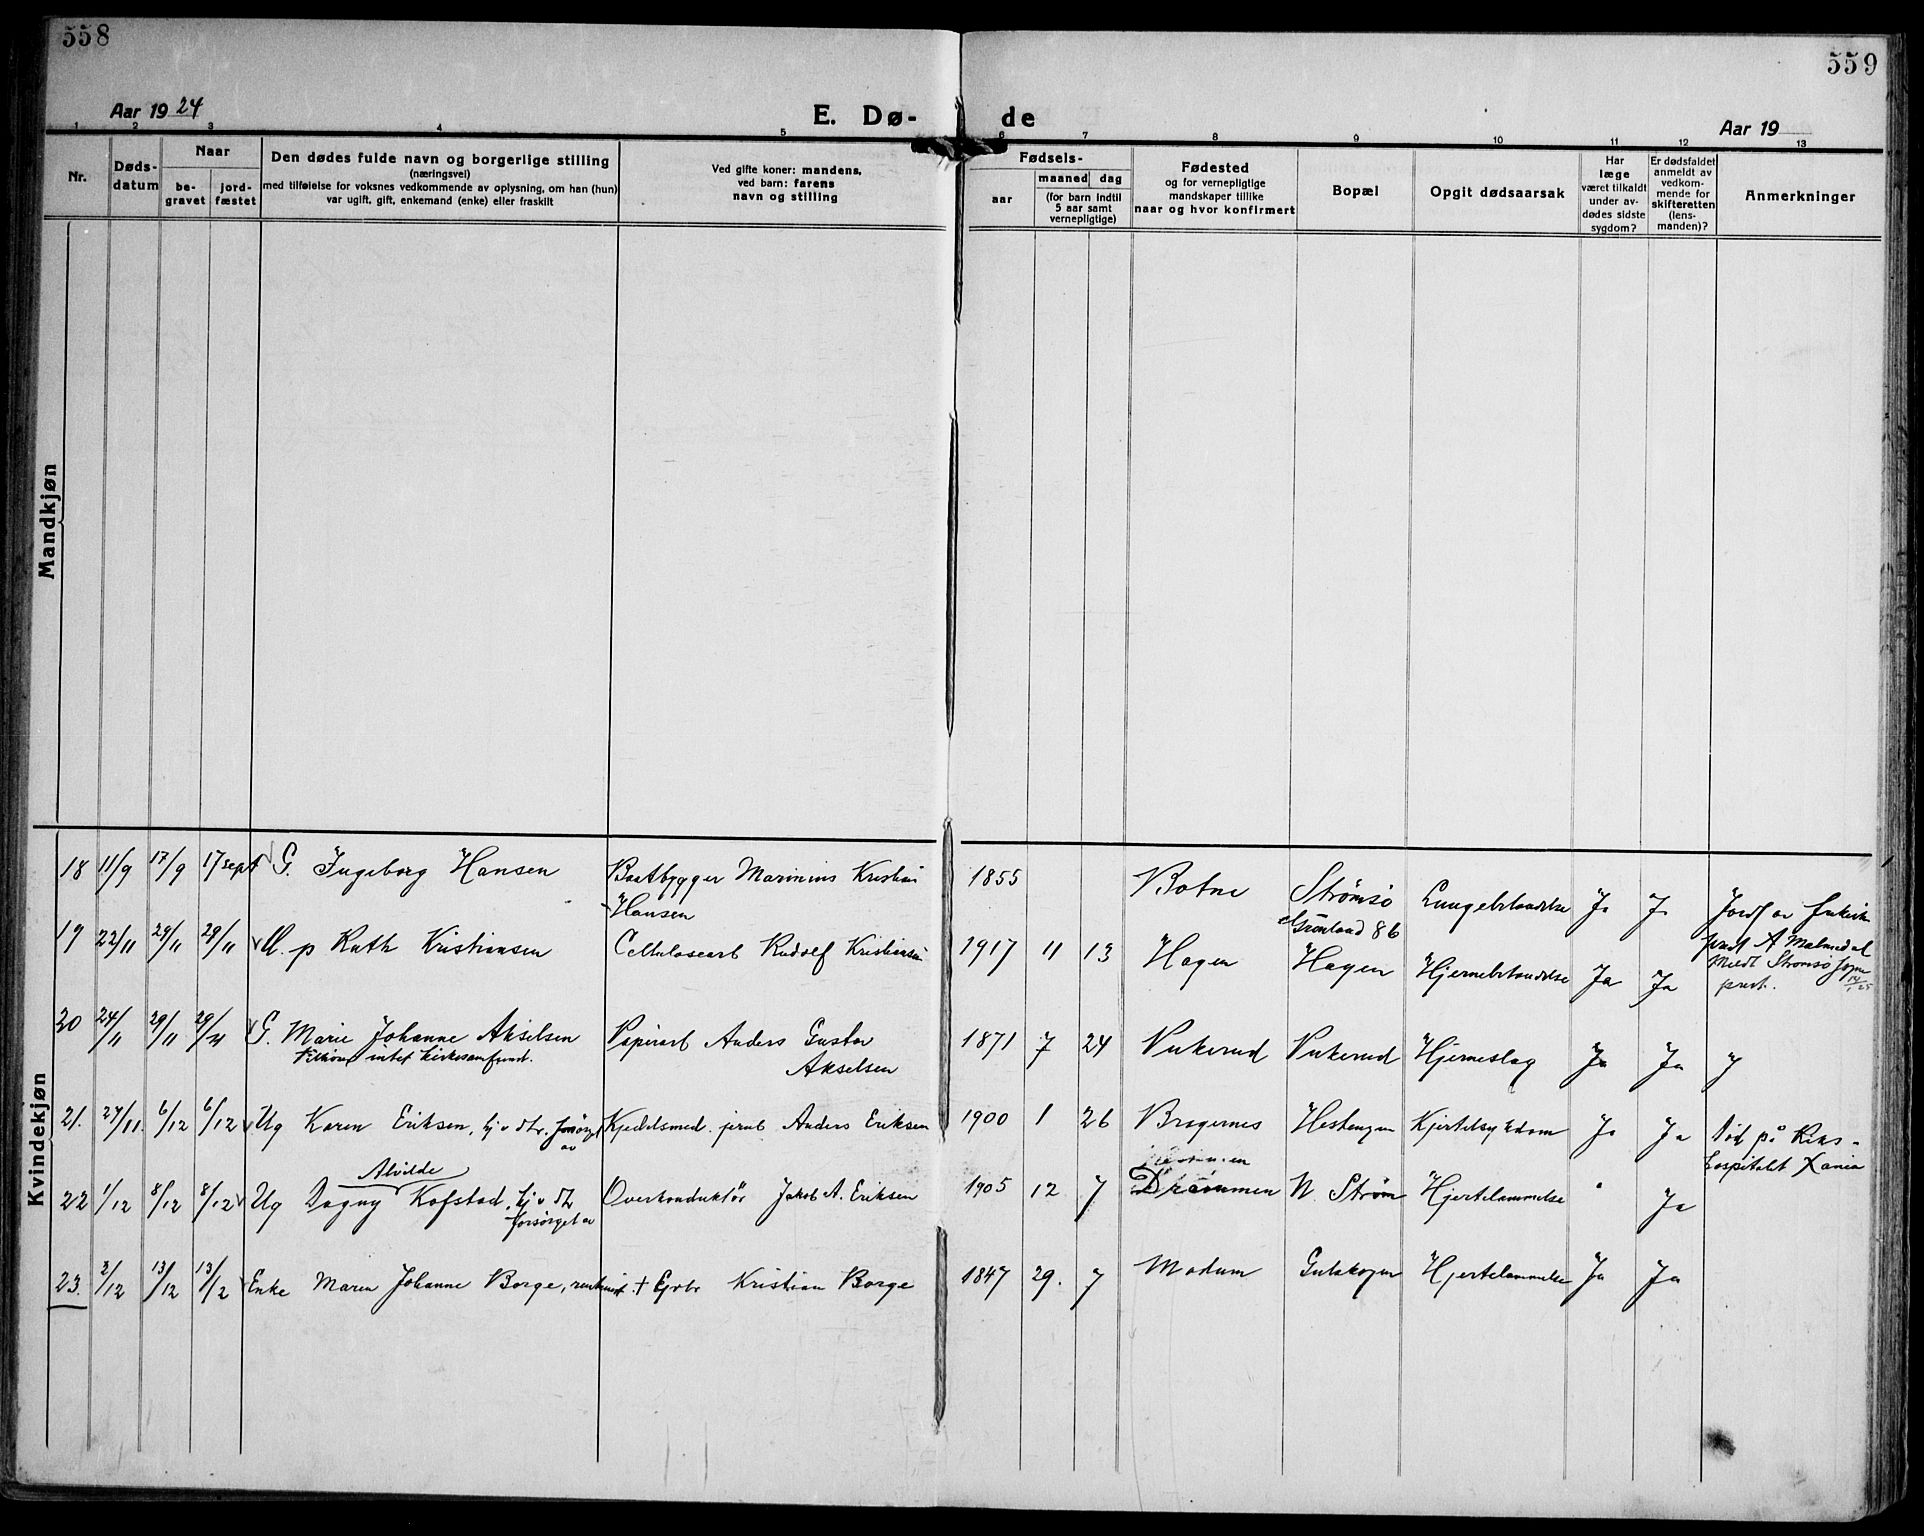 558
559
Aar 1924
E. Dø- de
Aar 19
1 2 3 4 5 6 7 8 9 10 11 12 13
Nr.
Døds-
datum
Naar
be-
gravet
jord-
fæstet
Den dødes fulde navn og borgerlige stilling
(næringsvei)
med tilføielse for voksnes vedkommende av oplysning, om han (hun)
var ugift, gift, enkemand (enke) eller fraskilt
Ved gifte koner: mandens,
ved barn: farens
navn og stilling
Fødsels-
aar
maaned dag
(for barn indtil
5 aar samt
vernepligtige)
Fødested
og for vernepligtige
mandskaper tillike
naar og hvor konfirmert
Bopæl
Opgit dødsaarsak
Har
læge
været tilkaldt
under av-
dødes sidste
sygdom?
Er dødsfaldet
anmeldt av
vedkom-
mende for
skifteretten
(lens-
manden)?
Anmerkninger
Mandkjøn
Kvindekjøn
18 11/9 17/9 17 sept G. Ingeborg Hansen Baatbygger Marinius Kristian
Hansen
1855 Botne Strømsø
Grønland 86
Lungebetændelse Ja J
19 22/11 29/11 29/11 U. p Ruth Kristiansen Cellulosearb Rudolf Kristiansen
1917 11 13 Hagen Hagen Hjernebetændelse Ja Ja
Jordf av
A Malmedal
Meldt Strømsø sogne
prest.
20 24/11 29/11 29/11 G. Marie Johanne Akselsen Papirarb Anders Gustav
Akselsen
intet kirkesamfund.
1871 7 24 Vukerud Vukerud Hjerneslag Ja Ja J
21. 27/11. 6/12 6/12 Ug Karen Eriksen, hj v dtr. forsørget
av
Kjedelsmed jernb Anders Eriksen
1900 1 26 Bragernes Hestengen Kjertelsykdom Ja Ja Død på Riks-
hospitalet Xania
Alvilde
22 1/12 8/12 8/12 Ug Dagny Kofstad, hj v dtr
forsørget av
Overkonduktør Jakob A. Eriksen
1905 12 7 Drammen N. Strøm Hjertelammelse " Ja
23. 3/12 13/12 13/12 Enke Maren Johanne Borge, + Grbr Kristian Borge
1847 29. 7 Modum Gulskogen Hjertelammelse Ja Ja